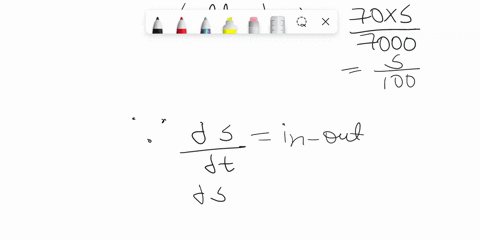 70×S
7000
= S/100
∵ ds/dt = in-out
ds